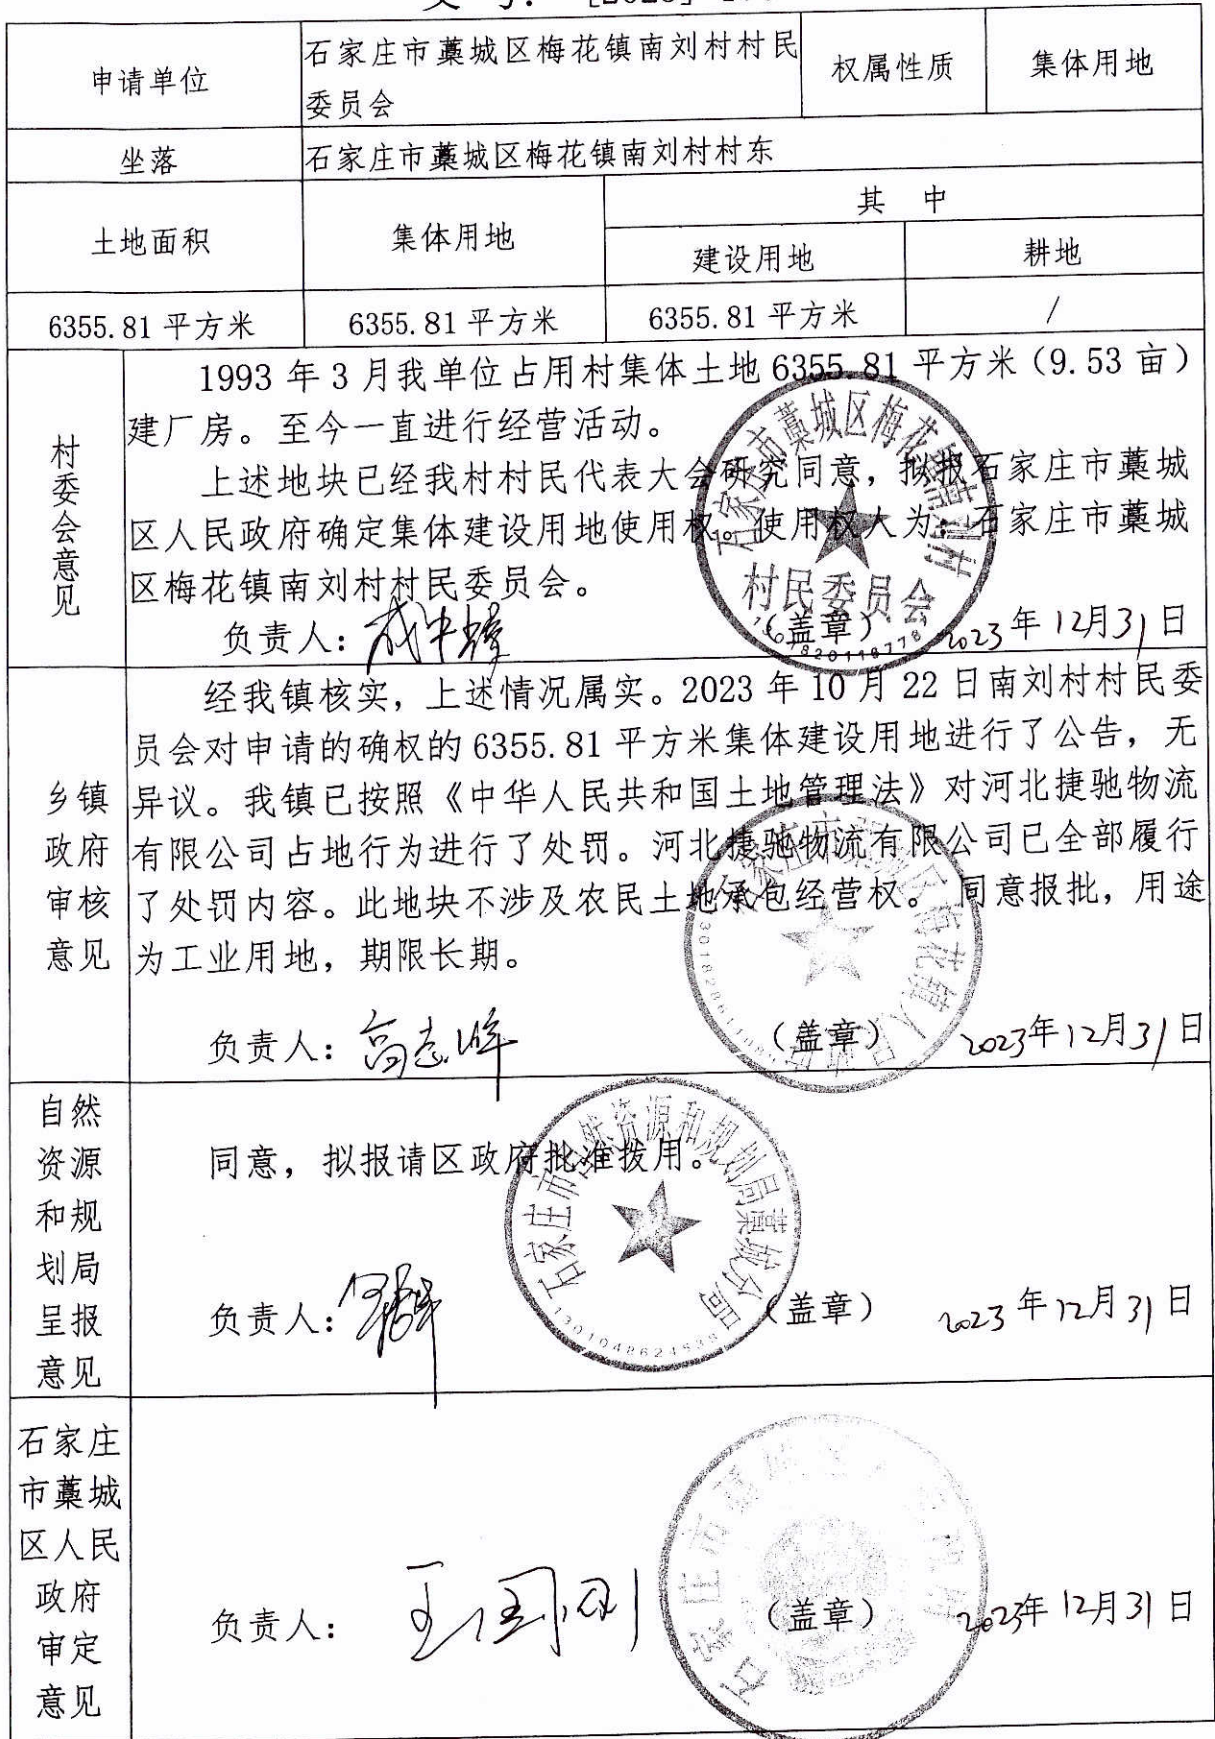 申请单位
石家庄市藁城区梅花镇南刘村村民
委员会
权属性质
集体用地
坐落
石家庄市藁城区梅花镇南刘村村东
土地面积
集体用地
其 中
建设用地
耕地
6355.81 平方米
6355.81 平方米
6355.81 平方米
/
村委会意见
1993 年 3 月我单位占用村集体土地 6355.81 平方米（9.53 亩）
建厂房。至今一直进行经营活动。
上述地块已经我村村民代表大会研究同意，拟报石家庄市藁城
区人民政府确定集体建设用地使用权。使用权人为：石家庄市藁城
区梅花镇南刘村村民委员会。
负责人：
（盖章）
2023 年 12月 31 日
石家庄市藁城区梅花镇南刘村
村民委员会
乡镇
政府
审核
意见
经我镇核实，上述情况属实。2023 年 10 月 22 日南刘村村民委
员会对申请的确权的 6355.81 平方米集体建设用地进行了公告，无
异议。我镇已按照《中华人民共和国土地管理法》对河北捷驰物流
有限公司占地行为进行了处罚。河北捷驰物流有限公司已全部履行
了处罚内容。此地块不涉及农民土地承包经营权。 同意报批，用途
为工业用地，期限长期。
负责人：
（盖章）
2023年 12月 31 日
自然
资源
和规
划局
呈报
意见
同意，拟报请区政府批准拨用。
石家庄市自然资源和规划局藁城分局
负责人：
（盖章）
2023 年 12月 31 日
石家庄
市藁城
区人民
政府
审定
意见
负责人： 王国刚
（盖章）
2023年 12月 31 日
石家庄市藁城区人民政府